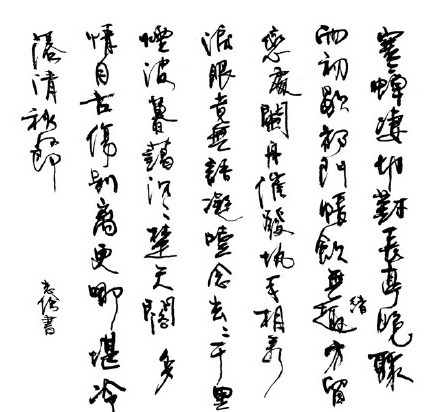 寒蟬凄切對長亭晚驟
雨初歇都門帳飲無趣方留
緒
戀處闌舟催發執手相看
淚眼竟無語凝噎念去々千里
煙波暮靄沉々楚天闊多
情自古傷別離更哪堪冷
落清秋節
書